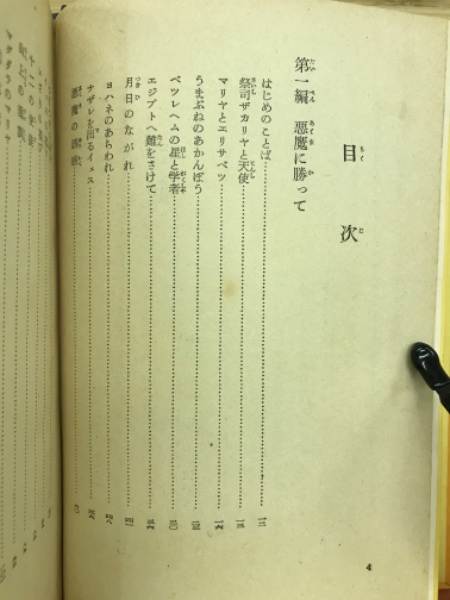 目次
第一編 悪魔に勝って
はじめのことば 一二
祭司ザカリヤと天使 一三
マリヤとエリサベツ 一六
うまぶねのあかんぼう 二三
ベツレヘムの星と学者 三〇
エジプトへ難をさけて 三六
月日のながれ 四一
ヨハネのあらわれ 四八
ナザレを出るイエス 五六
悪魔の誘惑 六〇
4
マグダラのマリヤ